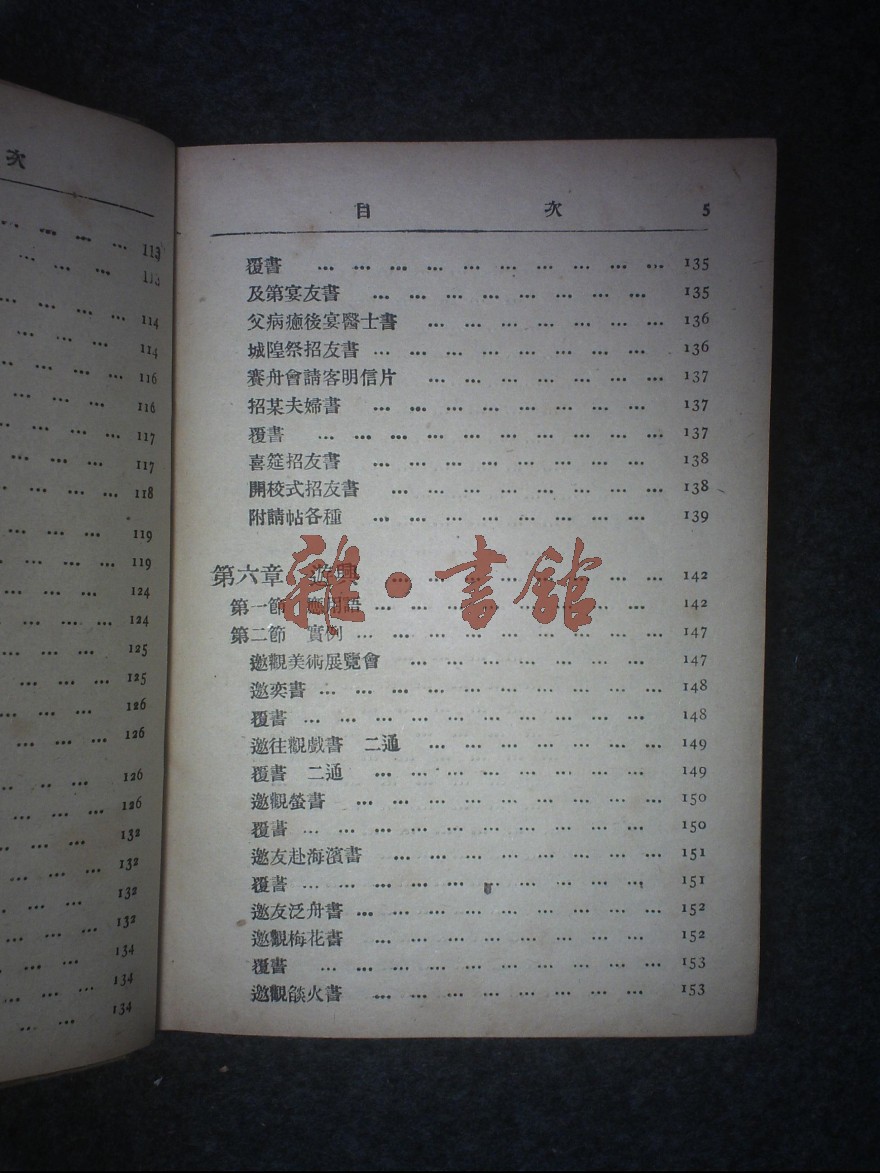 次
113
113
114
114
116
116
117
117
118
119
119
124
124
125
125
126
126
126
126
132
132
132
132
134
134
134
目 次 5
覆書 … … … … … … … … … … 135
及第宴友書 … … … … … … … … 135
父病癒後宴醫士書 … … … … … … … 136
城隍祭招友書 … … … … … … … … 136
賽舟會請客明信片 … … … … … … … 137
招某夫婦書 … … … … … … … … 137
覆書 … … … … … … … … … … 137
喜筵招友書 … … … … … … … … 138
開校式招友書 … … … … … … … … 138
附請帖各種 … … … … … … … … 139
第六章 遊興 … … … … … … … … 142
第一節 應用語 … … … … … … … … 142
第二節 實例 … … … … … … … … … 147
邀觀美術展覽會 … … … … … … … 147
邀奕書 … … … … … … … … … … 148
覆書 … … … … … … … … … … 148
邀往觀戲書 二通 … … … … … … … 149
覆書 二通 … … … … … … … … 149
邀觀螢書 … … … … … … … … … 150
覆書 … … … … … … … … … … 150
邀友赴海濱書 … … … … … … … … 151
覆書 … … … … … … … … … … 151
邀友泛舟書 … … … … … … … … … 152
邀觀梅花書 … … … … … … … … 152
覆書 … … … … … … … … … … 153
邀觀燄火書 … … … … … … … … 153
雜·書館